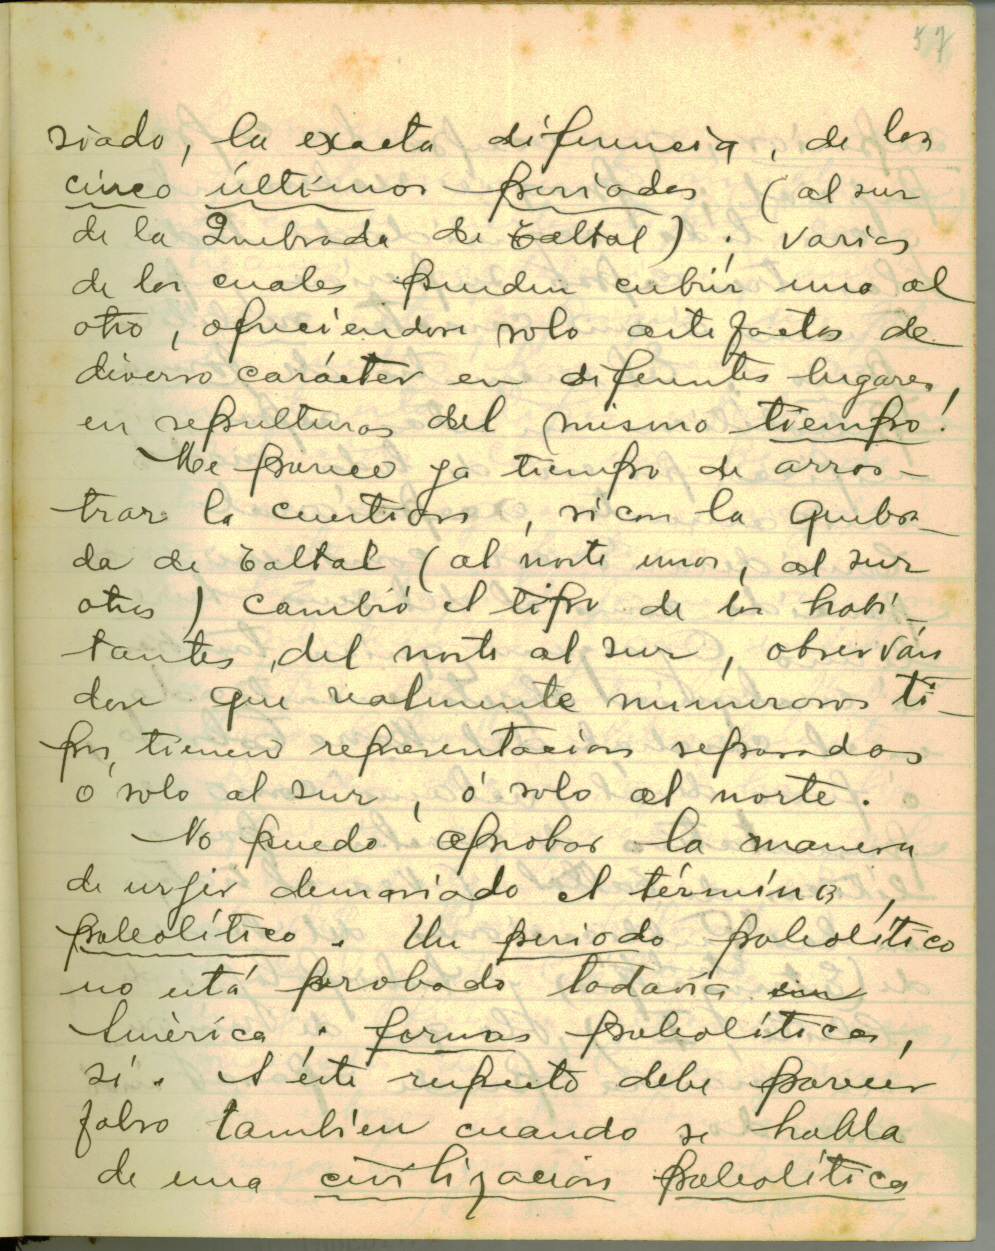 57
siado, la exacta diferencia, de los
cinco últimos periodos (al sur
de la Quebrada de Taltal); varios
de los cuales pueden cubrir uno al
otro, ofreciendose solo artefactos de
diverso carácter en diferentes lugares,
en sepulturas del mismo tiempo!
Me parece ya tiempo de arros-
trar la cuestion, si con la Quebra-
da de Taltal (al norte unos, al sur
otros) cambió el tipo de los habi-
tantes, del norte al sur, observán
dose que realmente numerosos ti-
pos, tienen representacion separados
ó solo al sur, ó solo al norte.
No puedo aprobar la manera
de urjir demasiado el término,
paleolítico. Un periodo paleolítico
no está probado todavia en
América; formas paleolíticas,
sí. A éste respecto debe parecer
falso tambien cuando se habla
de una civilizacion paleolítica